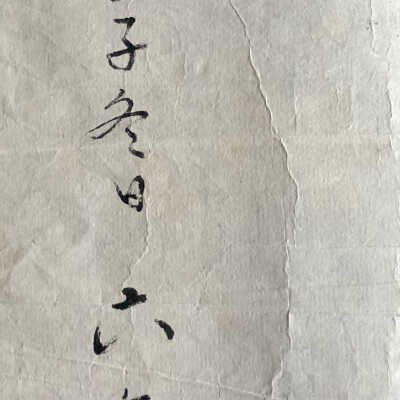 子冬日六